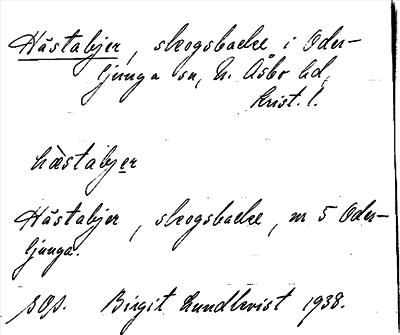 Hästabjer, skogsbacke i Oder-
ljunga sn, N. Åsbo hd,
Krist. l.
hæ̀stabjer
Hästabjer, skogsbacke, nr 5 Oder-
ljunga.
sop. Birgit Lundkvist 1938.